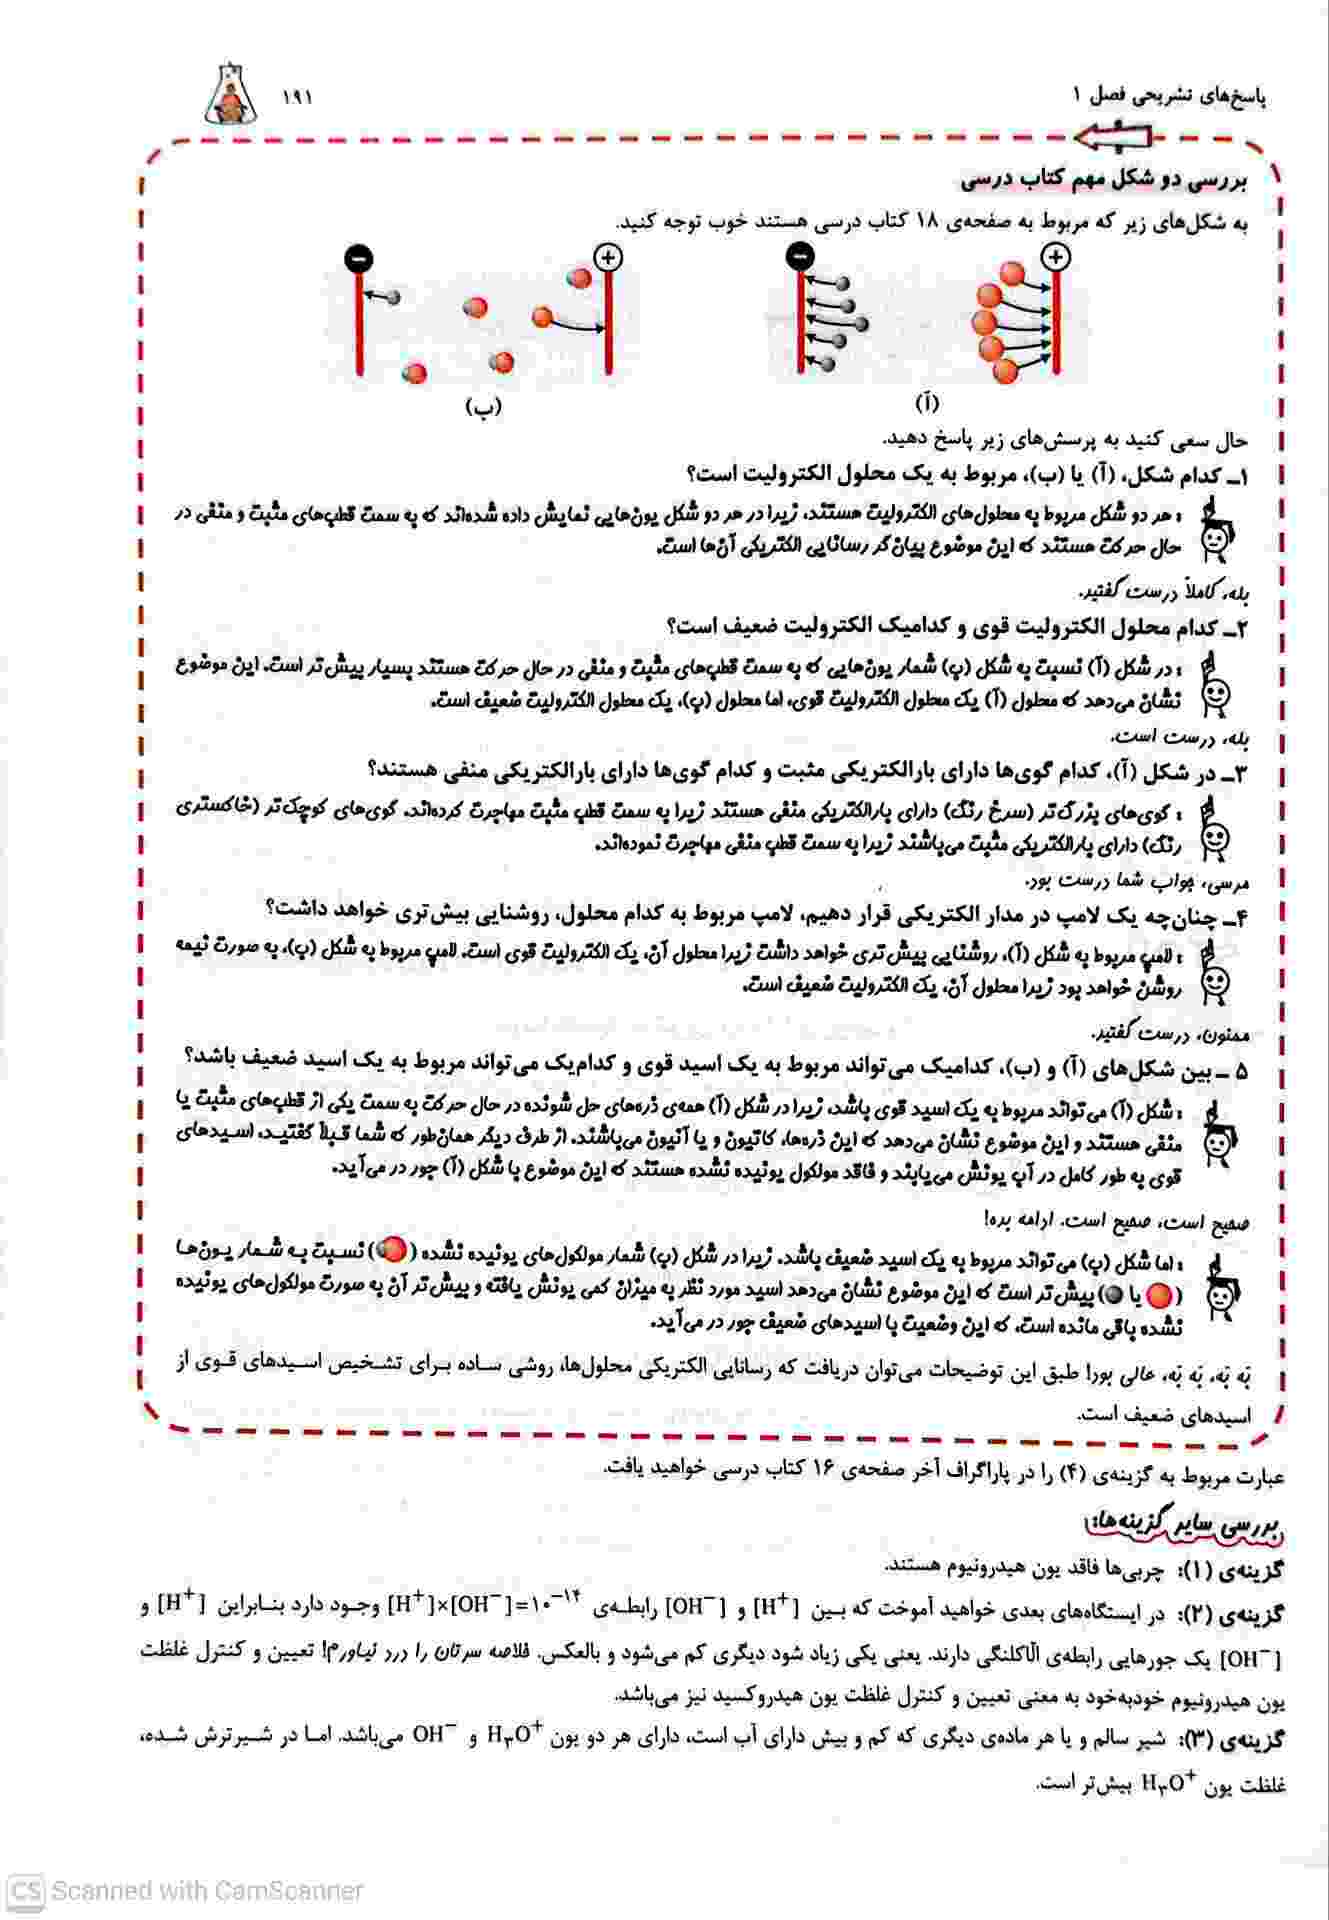 پاسخ‌های تشریحی فصل ۱
۱۹۱
بررسی دو شکل مهم کتاب درسی
به شکل‌های زیر که مربوط به صفحه‌ی ۱۸ کتاب درسی هستند خوب توجه کنید.
(آ)
(ب)
حال سعی کنید به پرسش‌های زیر پاسخ دهید.
۱ـ کدام شکل، (آ) یا (ب)، مربوط به یک محلول الکترولیت است؟
: هر دو شکل مربوط به محلول‌های الکترولیت هستند، زیرا در هر دو شکل یون‌هایی نمایش داده شده‌اند که به سمت قطب‌های مثبت و منفی در
حال حرکت هستند که این موضوع بیان‌گر رسانایی الکتریکی آن‌ها است.
بله، کاملاً درست گفتیر.
۲ـ کدام محلول الکترولیت قوی و کدامیک الکترولیت ضعیف است؟
: در شکل (آ) نسبت به شکل (ب) شمار یون‌هایی که به سمت قطب‌های مثبت و منفی در حال حرکت هستند بسیار بیش‌تر است. این موضوع
نشان می‌دهد که محلول (آ) یک محلول الکترولیت قوی، اما محلول (ب)، یک محلول الکترولیت ضعیف است.
بله، درست است.
۳ـ در شکل (آ)، کدام گوی‌ها دارای بارالکتریکی مثبت و کدام گوی‌ها دارای بارالکتریکی منفی هستند؟
: گوی‌های بزرگ‌تر (سرخ رنگ) دارای بارالکتریکی منفی هستند زیرا به سمت قطب مثبت مهاجرت کرده‌اند. گوی‌های کوچک‌تر (خاکستری
رنگ) دارای بارالکتریکی مثبت می‌باشند زیرا به سمت قطب منفی مهاجرت نموده‌اند.
مرسی، جواب شما درست بور.
۴ـ چنان‌چه یک لامپ در مدار الکتریکی قرار دهیم، لامپ مربوط به کدام محلول، روشنایی بیش‌تری خواهد داشت؟
: لامپ مربوط به شکل (آ)، روشنایی بیش‌تری خواهد داشت زیرا محلول آن، یک الکترولیت قوی است. لامپ مربوط به شکل (ب)، به صورت نیمه
روشن خواهد بود زیرا محلول آن، یک الکترولیت ضعیف است.
ممنون، درست گفتیر.
۵ ـ بین شکل‌های (آ) و (ب)، کدامیک می‌تواند مربوط به یک اسید قوی و کدام‌یک می‌تواند مربوط به یک اسید ضعیف باشد؟
: شکل (آ) می‌تواند مربوط به یک اسید قوی باشد، زیرا در شکل (آ) همه‌ی ذره‌های حل شونده در حال حرکت به سمت یکی از قطب‌های مثبت یا
منفی هستند و این موضوع نشان می‌دهد که این ذره‌ها، کاتیون و یا آنیون می‌باشند. از طرف دیگر همان‌طور که شما قبلاً گفتید، اسیدهای
قوی به طور کامل در آب یونش می‌یابند و فاقد مولکول یونیده نشده هستند که این موضوع با شکل (آ) جور در می‌آید.
صحیح است، صحیح است. ادامه بره!
: اما شکل (ب) می‌تواند مربوط به یک اسید ضعیف باشد. زیرا در شکل (ب) شمار مولکول‌های یونیده نشده ( ) نسبت به شمار یون‌ها
( یا ) بیش‌تر است که این موضوع نشان می‌دهد اسید مورد نظر به میزان کمی یونش یافته و بیش‌تر آن به صورت مولکول‌های یونیده
نشده باقی مانده است، که این وضعیت با اسیدهای ضعیف جور در می‌آید.
بَه بَه، بَه بَه، عالی بور! طبق این توضیحات می‌توان دریافت که رسانایی الکتریکی محلول‌ها، روشی ساده برای تشخیص اسیدهای قوی از
اسیدهای ضعیف است.
عبارت مربوط به گزینه‌ی (۴) را در پاراگراف آخر صفحه‌ی ۱۶ کتاب درسی خواهید یافت.
بررسی سایر گزینه‌ها:
گزینه‌ی (۱): چربی‌ها فاقد یون هیدرونیوم هستند.
گزینه‌ی (۲): در ایستگاه‌های بعدی خواهید آموخت که بین [H⁺] و [OH⁻] رابطه‌ی [H⁺]×[OH⁻]=۱۰⁻¹⁴ وجود دارد بنابراین [H⁺] و
[OH⁻] یک جورهایی رابطه‌ی الّاکلنگی دارند. یعنی یکی زیاد شود دیگری کم می‌شود و بالعکس. خلاصه سرتان را درد نیاورم! تعیین و کنترل غلظت
یون هیدرونیوم خودبه‌خود به معنی تعیین و کنترل غلظت یون هیدروکسید نیز می‌باشد.
گزینه‌ی (۳): شیر سالم و یا هر ماده‌ی دیگری که کم و بیش دارای آب است، دارای هر دو یون H₃O⁺ و OH⁻ می‌باشد. اما در شیرترش شده،
غلظت یون H₃O⁺ بیش‌تر است.
CS Scanned with CamScanner